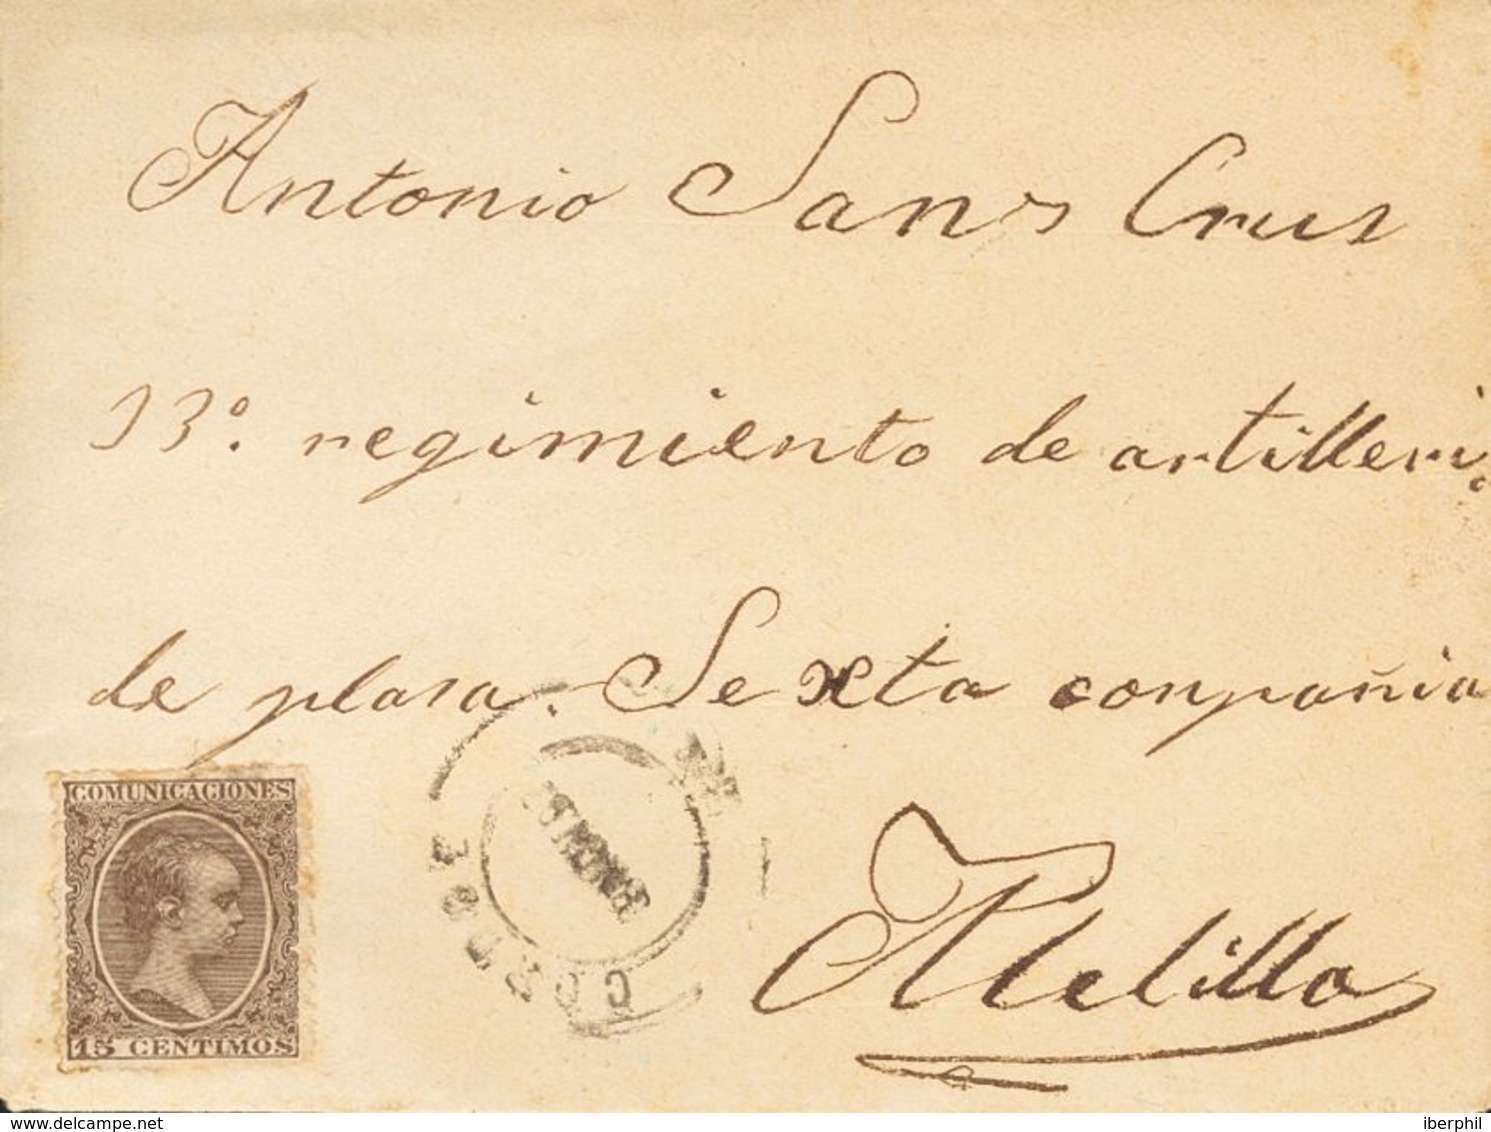 Antonio Sans Crus
13º. regimiento de artilleri.
de plasa. Sexta conpañia
COMUNICACIONES
15 CENTIMOS
Melilla
www.delcampe.net
iberphil